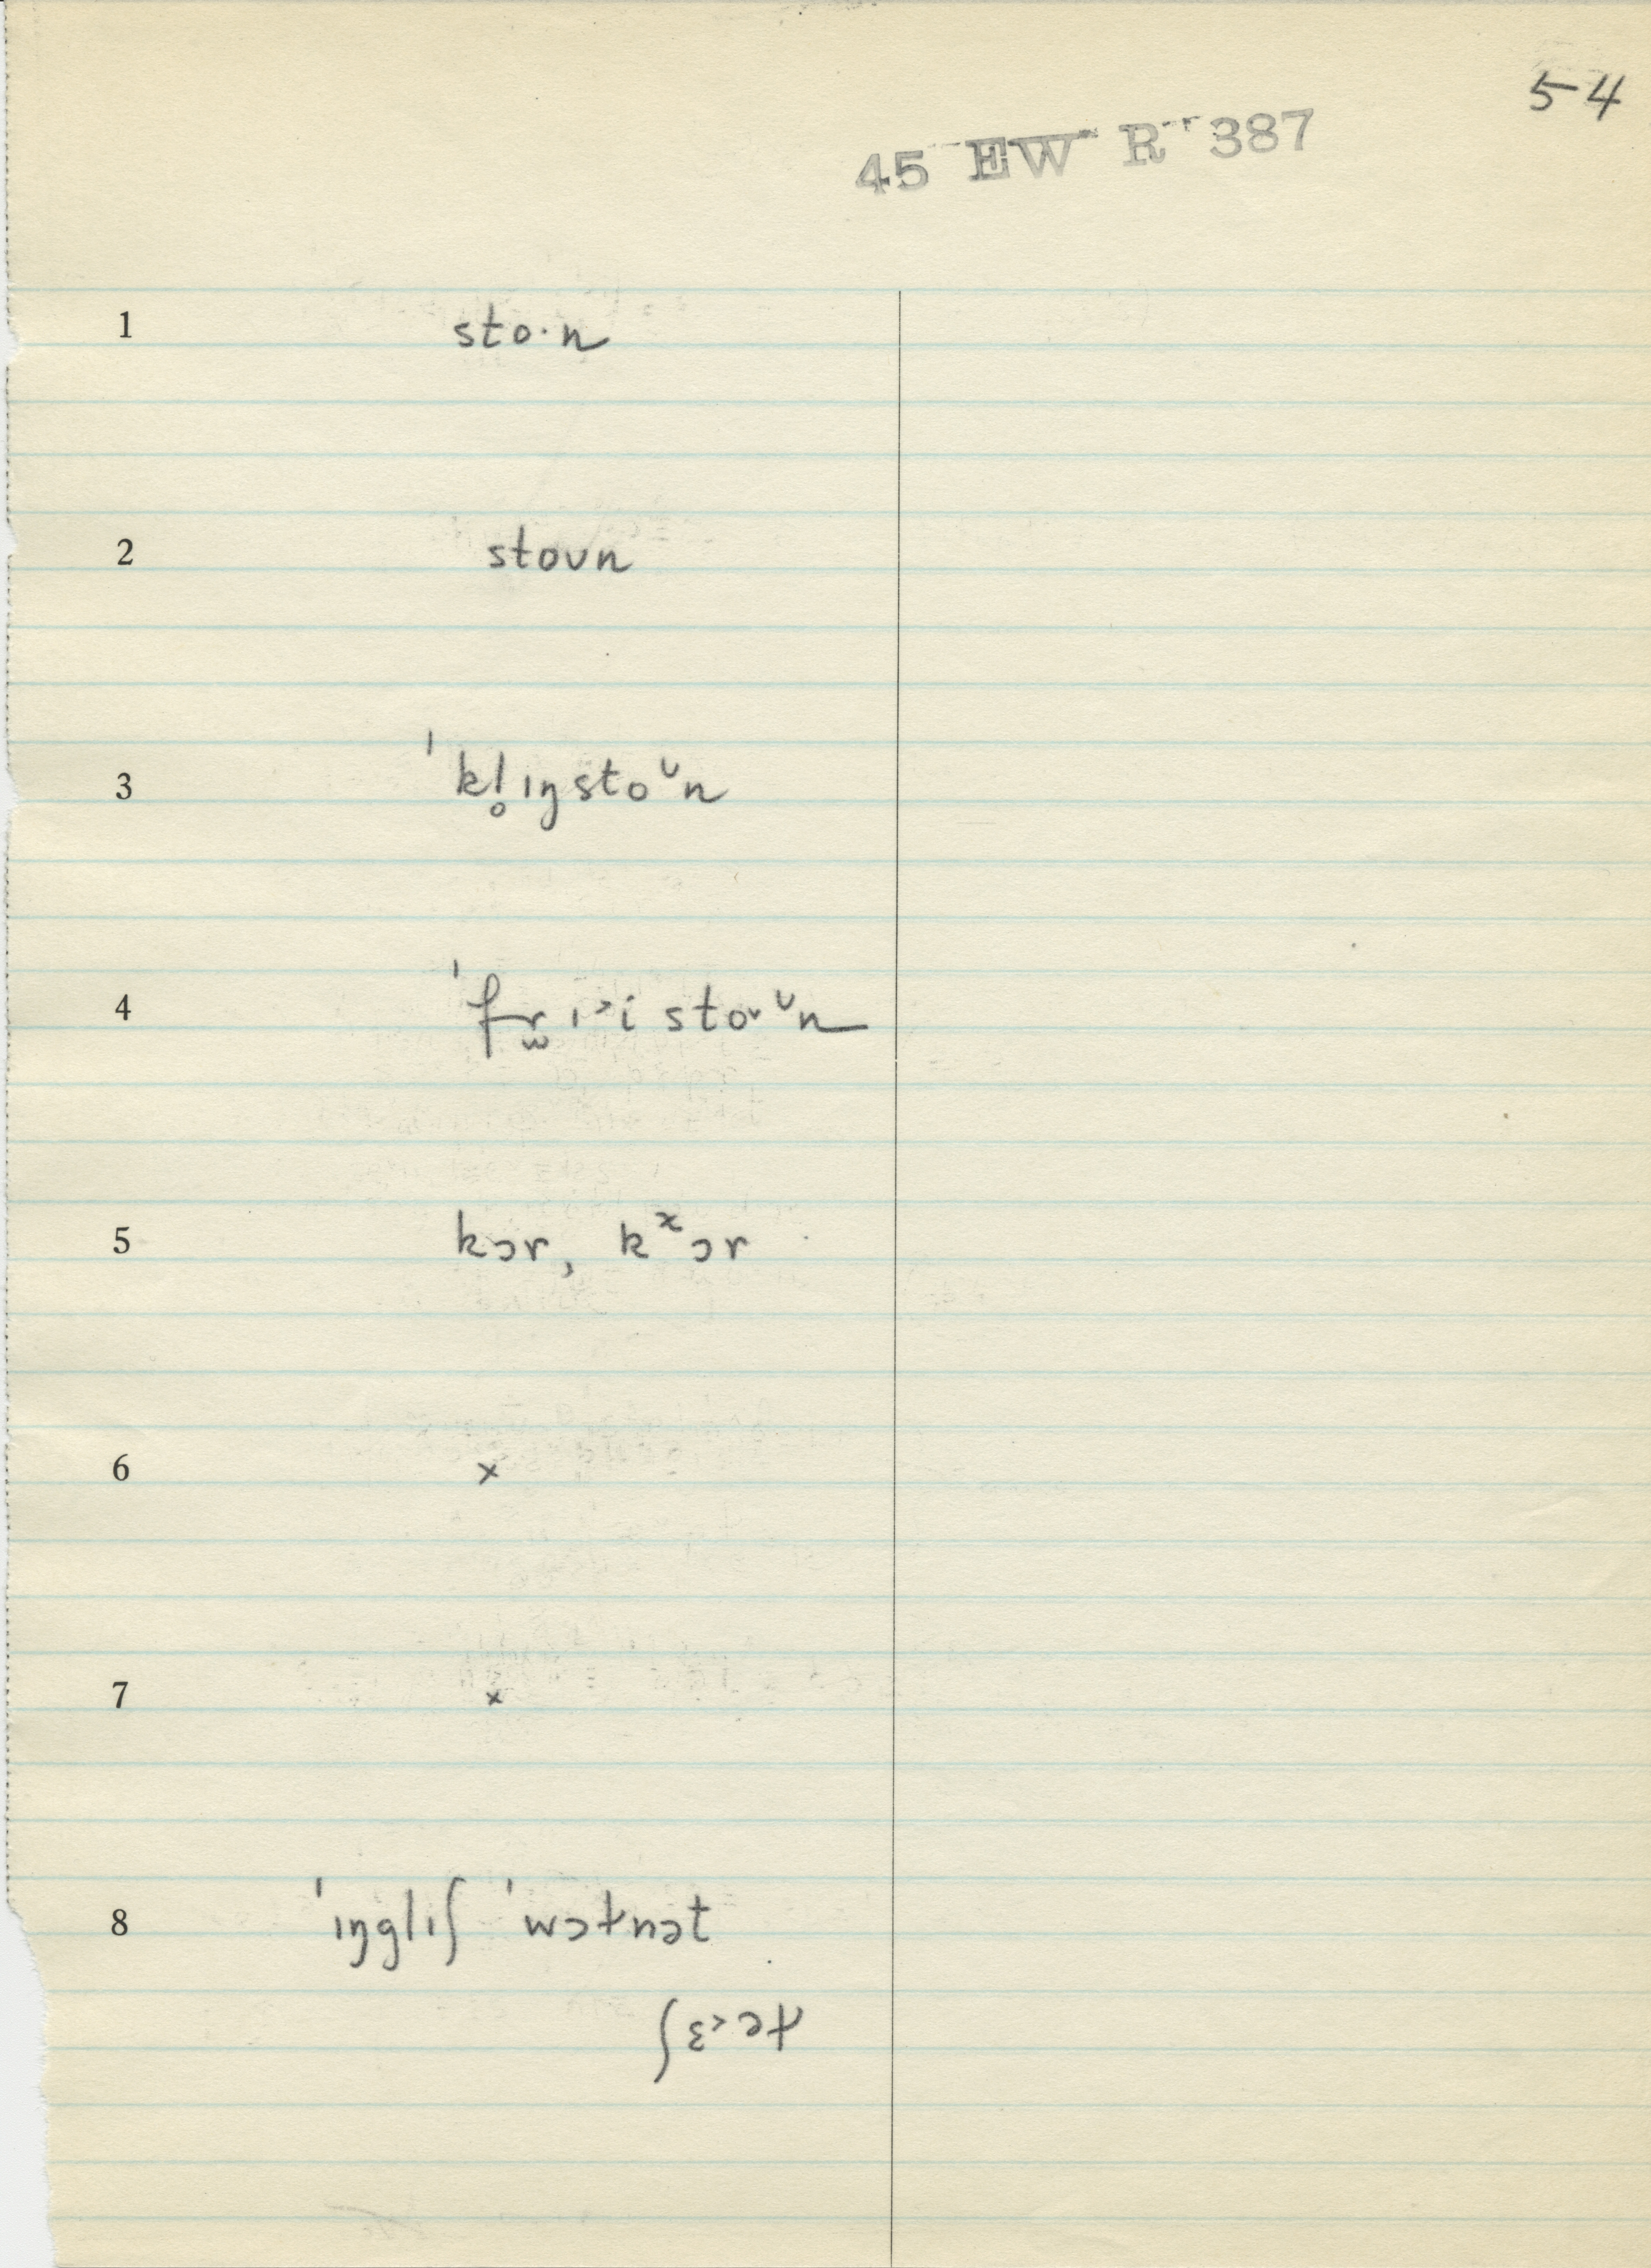 54
45 EW R 387
1 sto·n
2 stoʊn
3 ˈkl̥ɪŋstoᶷn
4 ˈfr̫ɪ˃i sto˅ᶷn
5 kɔr, kˣɔr
6 ×
7 ×
8 ˈɪŋglɪʃ ˈwɔɫnət
ʃɛ˃əɫ